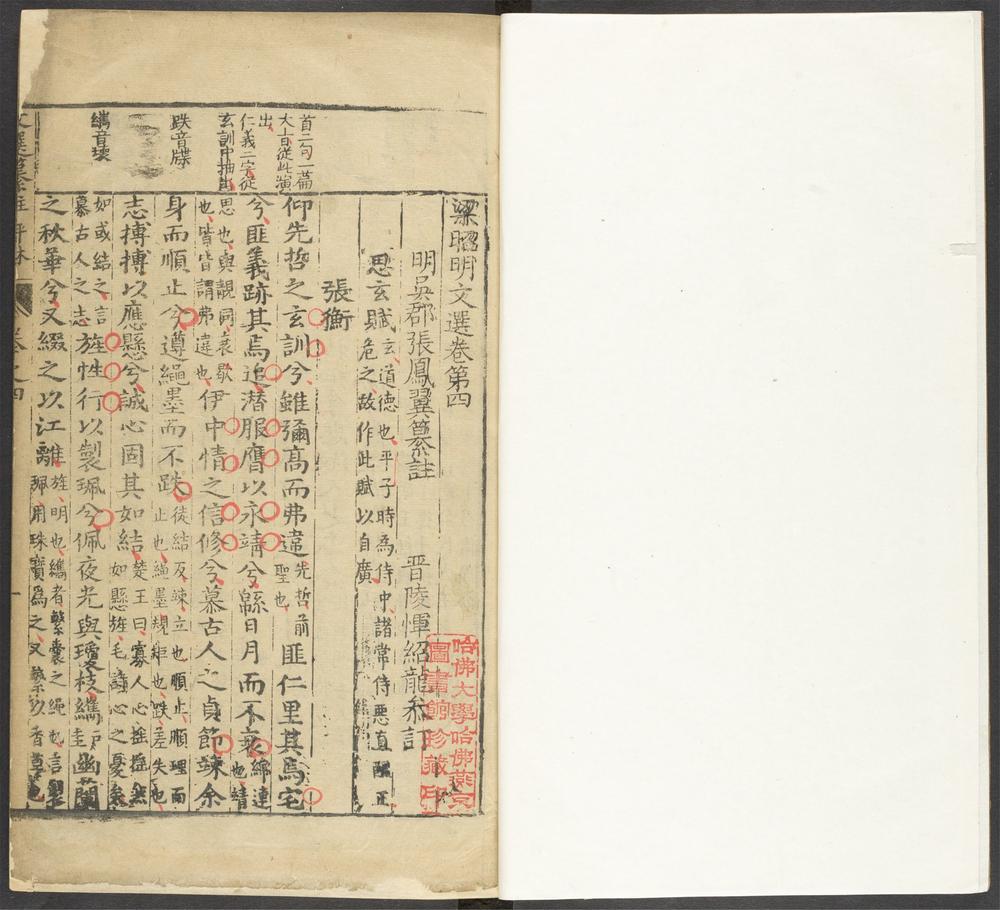 梁昭明文選卷第四
明吳郡張鳳翼纂註
晋陵惲紹龍參訂
思玄賦
玄、道德也、平子時為侍中、諸常侍惡直醜正
危之、故作此賦以自廣
張衡
仰先哲之玄訓兮雖彌高而弗違
先哲、前
聖也
匪仁里其焉宅
兮匪義跡其焉追潜服膺以永靖兮緜日月而不衰
綿、連
也、靖
思也、與靚同、衰、歇
也、皆謂弗違也
伊中情之信修兮慕古人之貞節竦余
身而順止兮遵繩墨而不跌
徒結反、竦、立也、順止、順理而
止也、繩墨、規矩也、跌、差失也
志摶摶以應懸兮誠心固其如結
楚王曰、寡人心搖搖然
如懸旌、毛詩、心之憂矣
如或結之、言
慕古人之志
旌性行以製珮兮佩夜光與瓊枝纗
圭
幽蘭
之秋華兮又綴之以江離
旌、明也、纗者、繫囊之繩也、言製
珮、用珠寶為之、又繫以香草也
首二句一篇
大旨從此演
出、
仁義二字從
玄訓中抽出
跌音牒
哈佛大學哈佛燕京
圖書館珍藏印